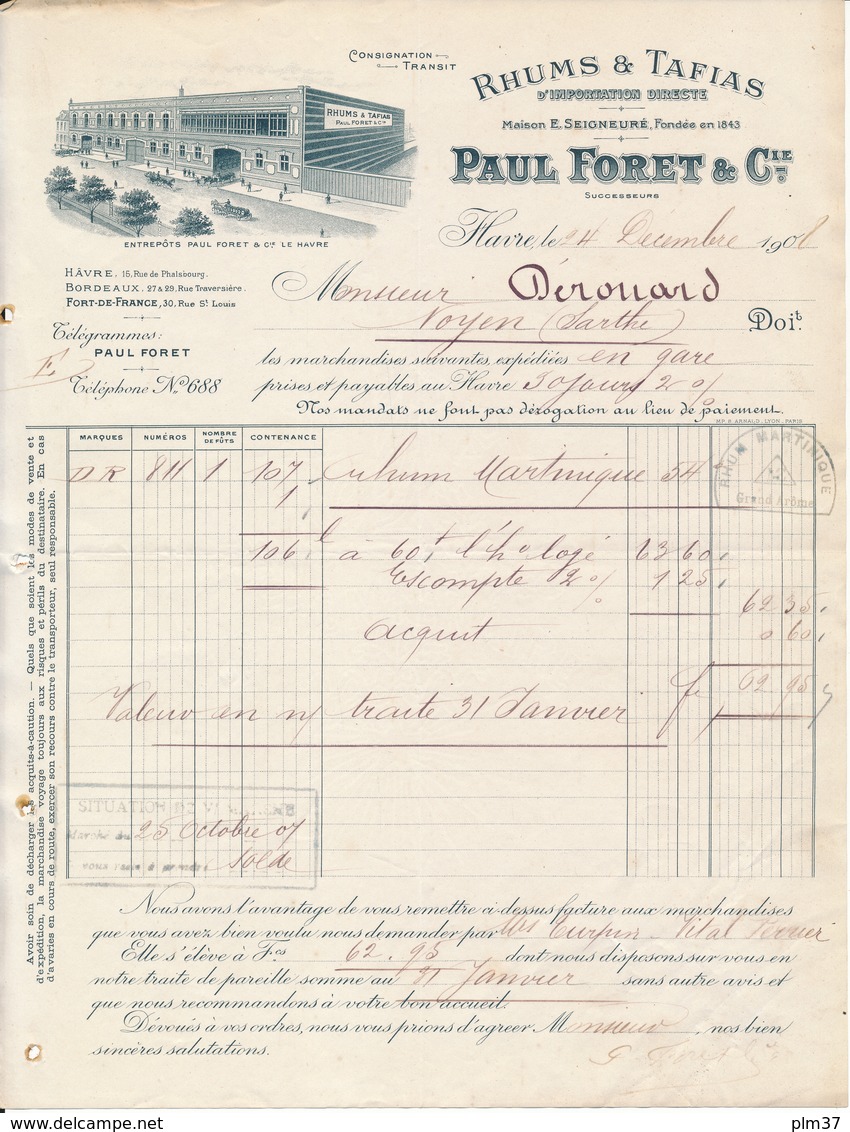 CONSIGNATION
TRANSIT
RHUMS & TAFIAS
D'IMPORTATION DIRECTE
Maison E. SEIGNEURÉ, Fondée en 1843
PAUL FORET & CIE
SUCCESSEURS
RHUMS & TAFIAS
PAUL FORET & Cie
ENTREPÔTS PAUL FORET & Cie LE HAVRE
Havre, le 24 Decembre 1908
HÂVRE, 15, Rue de Phalsbourg.
BORDEAUX, 27 & 29, Rue Traversière.
FORT-DE-FRANCE, 30, Rue St Louis
Télégrammes:
PAUL FORET
Téléphone No 688
Monsieur Dérouard
Noyen (Sarthe) Doit
les marchandises suivantes, expédiées en gare
prises et payables au Havre 30 jours 2 %
Nos mandats ne font pas dérogation au lieu de paiement.
IMP. B. ARNAUD, LYON-PARIS
MARQUES NUMÉROS NOMBRE DE FÛTS CONTENANCE
DR 811 1 107 rhum Martinique 54
1
106 l à 60 f l'ho logé 63 60
Escompte 2 % 1 25
62 35
acquit 0 60
62 95
Valeur en n/ traite 31 Janvier
RHUM MARTINIQUE
Grand Arôme
SITUATION DE
Marché du 25 Octobre 07
vous reste à prendre solde
Avoir soin de décharger les acquits-à-caution. — Quels que soient les modes de vente et
d'expédition, la marchandise voyage toujours aux risques et périls du destinataire. En cas
d'avaries en cours de route, exercer son recours contre le transporteur, seul responsable.
Nous avons l'avantage de vous remettre ci-dessus facture aux marchandises
que vous avez bien voulu nous demander par Turpin - Vital
Elle s'élève à Fcs 62.95 dont nous disposons sur vous en
notre traite de pareille somme au 31 Janvier sans autre avis et
que nous recommandons à votre bon accueil.
Dévoués à vos ordres, nous vous prions d'agréer Monsieur, nos bien
sincères salutations.
plm37